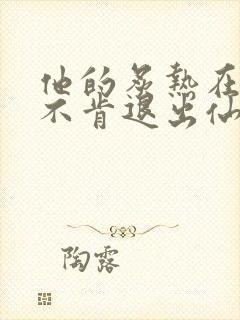 他的炙热在
不肯退出仙
陶露